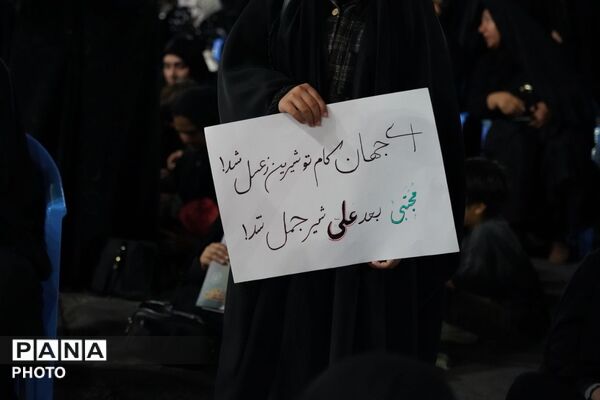 ای جهان کام تو شیرین ز عسل شد!
مجتبی بعد علی شیر جمل شد!
PANA
PHOTO